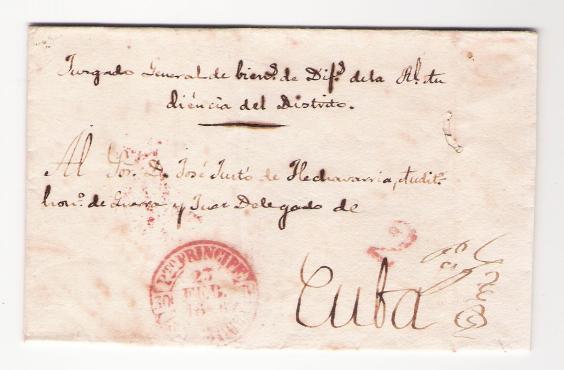 Juzgado General de bienˢ de Difˢ de la Rˡ Au
diencia del Distrito.
Al Sor. Dn José Justo de Hechavarria, Auditr
honro. de Guerra y Juez Delegado de
2
Cuba
PTO. PRINCIPE
23
FEB.